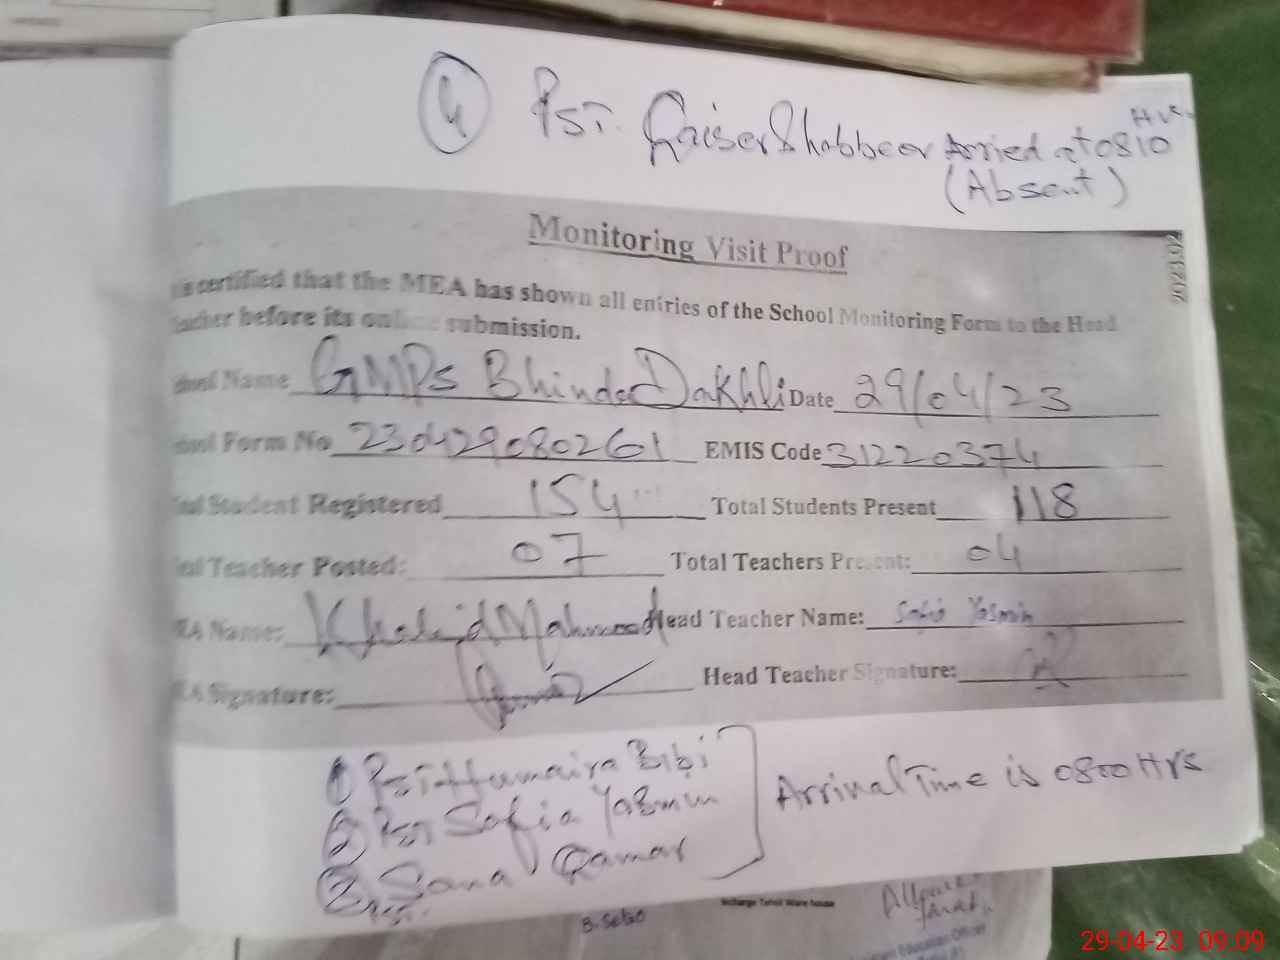 4 PST. Qaiser Shabbeer Arrived at 0810 Hrs
(Absent)
Monitoring Visit Proof
2023.02
is certified that the MEA has shown all entries of the School Monitoring Form to the Head
teacher before its online submission.
School Name GMPS Bhinder Dakhli Date 29/04/23
School Form No 230429080261 EMIS Code 31220374
Total Student Registered 154 Total Students Present 118
Total Teacher Posted: 07 Total Teachers Present: 04
MEA Name: Khalid Mahmood Head Teacher Name: Safia Yasmin
MEA Signature: Head Teacher Signature:
1 PST Humaira Bibi
2 PST Safia Yasmin Arrival Time is 0800 Hrs
3 Sana Qamar
PST.
Incharge Tehsil Ware house
Education Officer
29-04-23 09:09